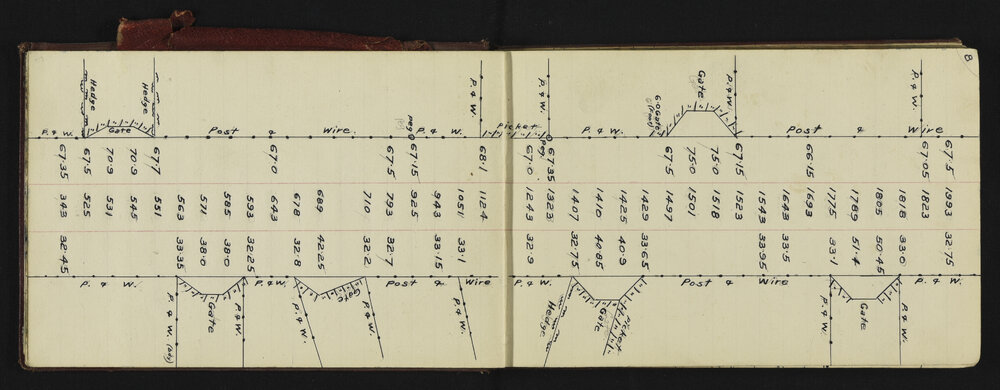 8
Hedge
Hedge
Gate
P. & W.
Post & Wire
Peg
P. & W.
P. & W.
Picket
P. & W.
Peg
P. & W.
Gate
Gate
P. & W.
Post & Wire
67.35 67.5 70.9 70.9 67.7 67.0 67.5 67.15 68.1 67.0 67.35 67.5 75.0 75.0 67.15 66.15 67.05 67.5
343 525 531 545 551 563 571 585 593 643 678 689 710 793 925 943 1051 1124 1243 1323 1407 1410 1425 1429 1497 1501 1518 1523 1543 1643 1693 1775 1789 1805 1818 1823 1993
32.45 33.35 38.0 38.0 32.25 32.8 42.25 32.2 32.7 33.15 33.1 32.9 32.75 40.85 40.9 33.65 33.95 33.5 33.1 51.4 50.45 33.0 32.75
P. & W.
P. & W.
Post & Wire
Post & Wire
P. & W.
P. & W.
Gate
P. & W.
P. & W.
Gate
P. & W.
Hedge
Gate
Picket
Gate
P. & W.